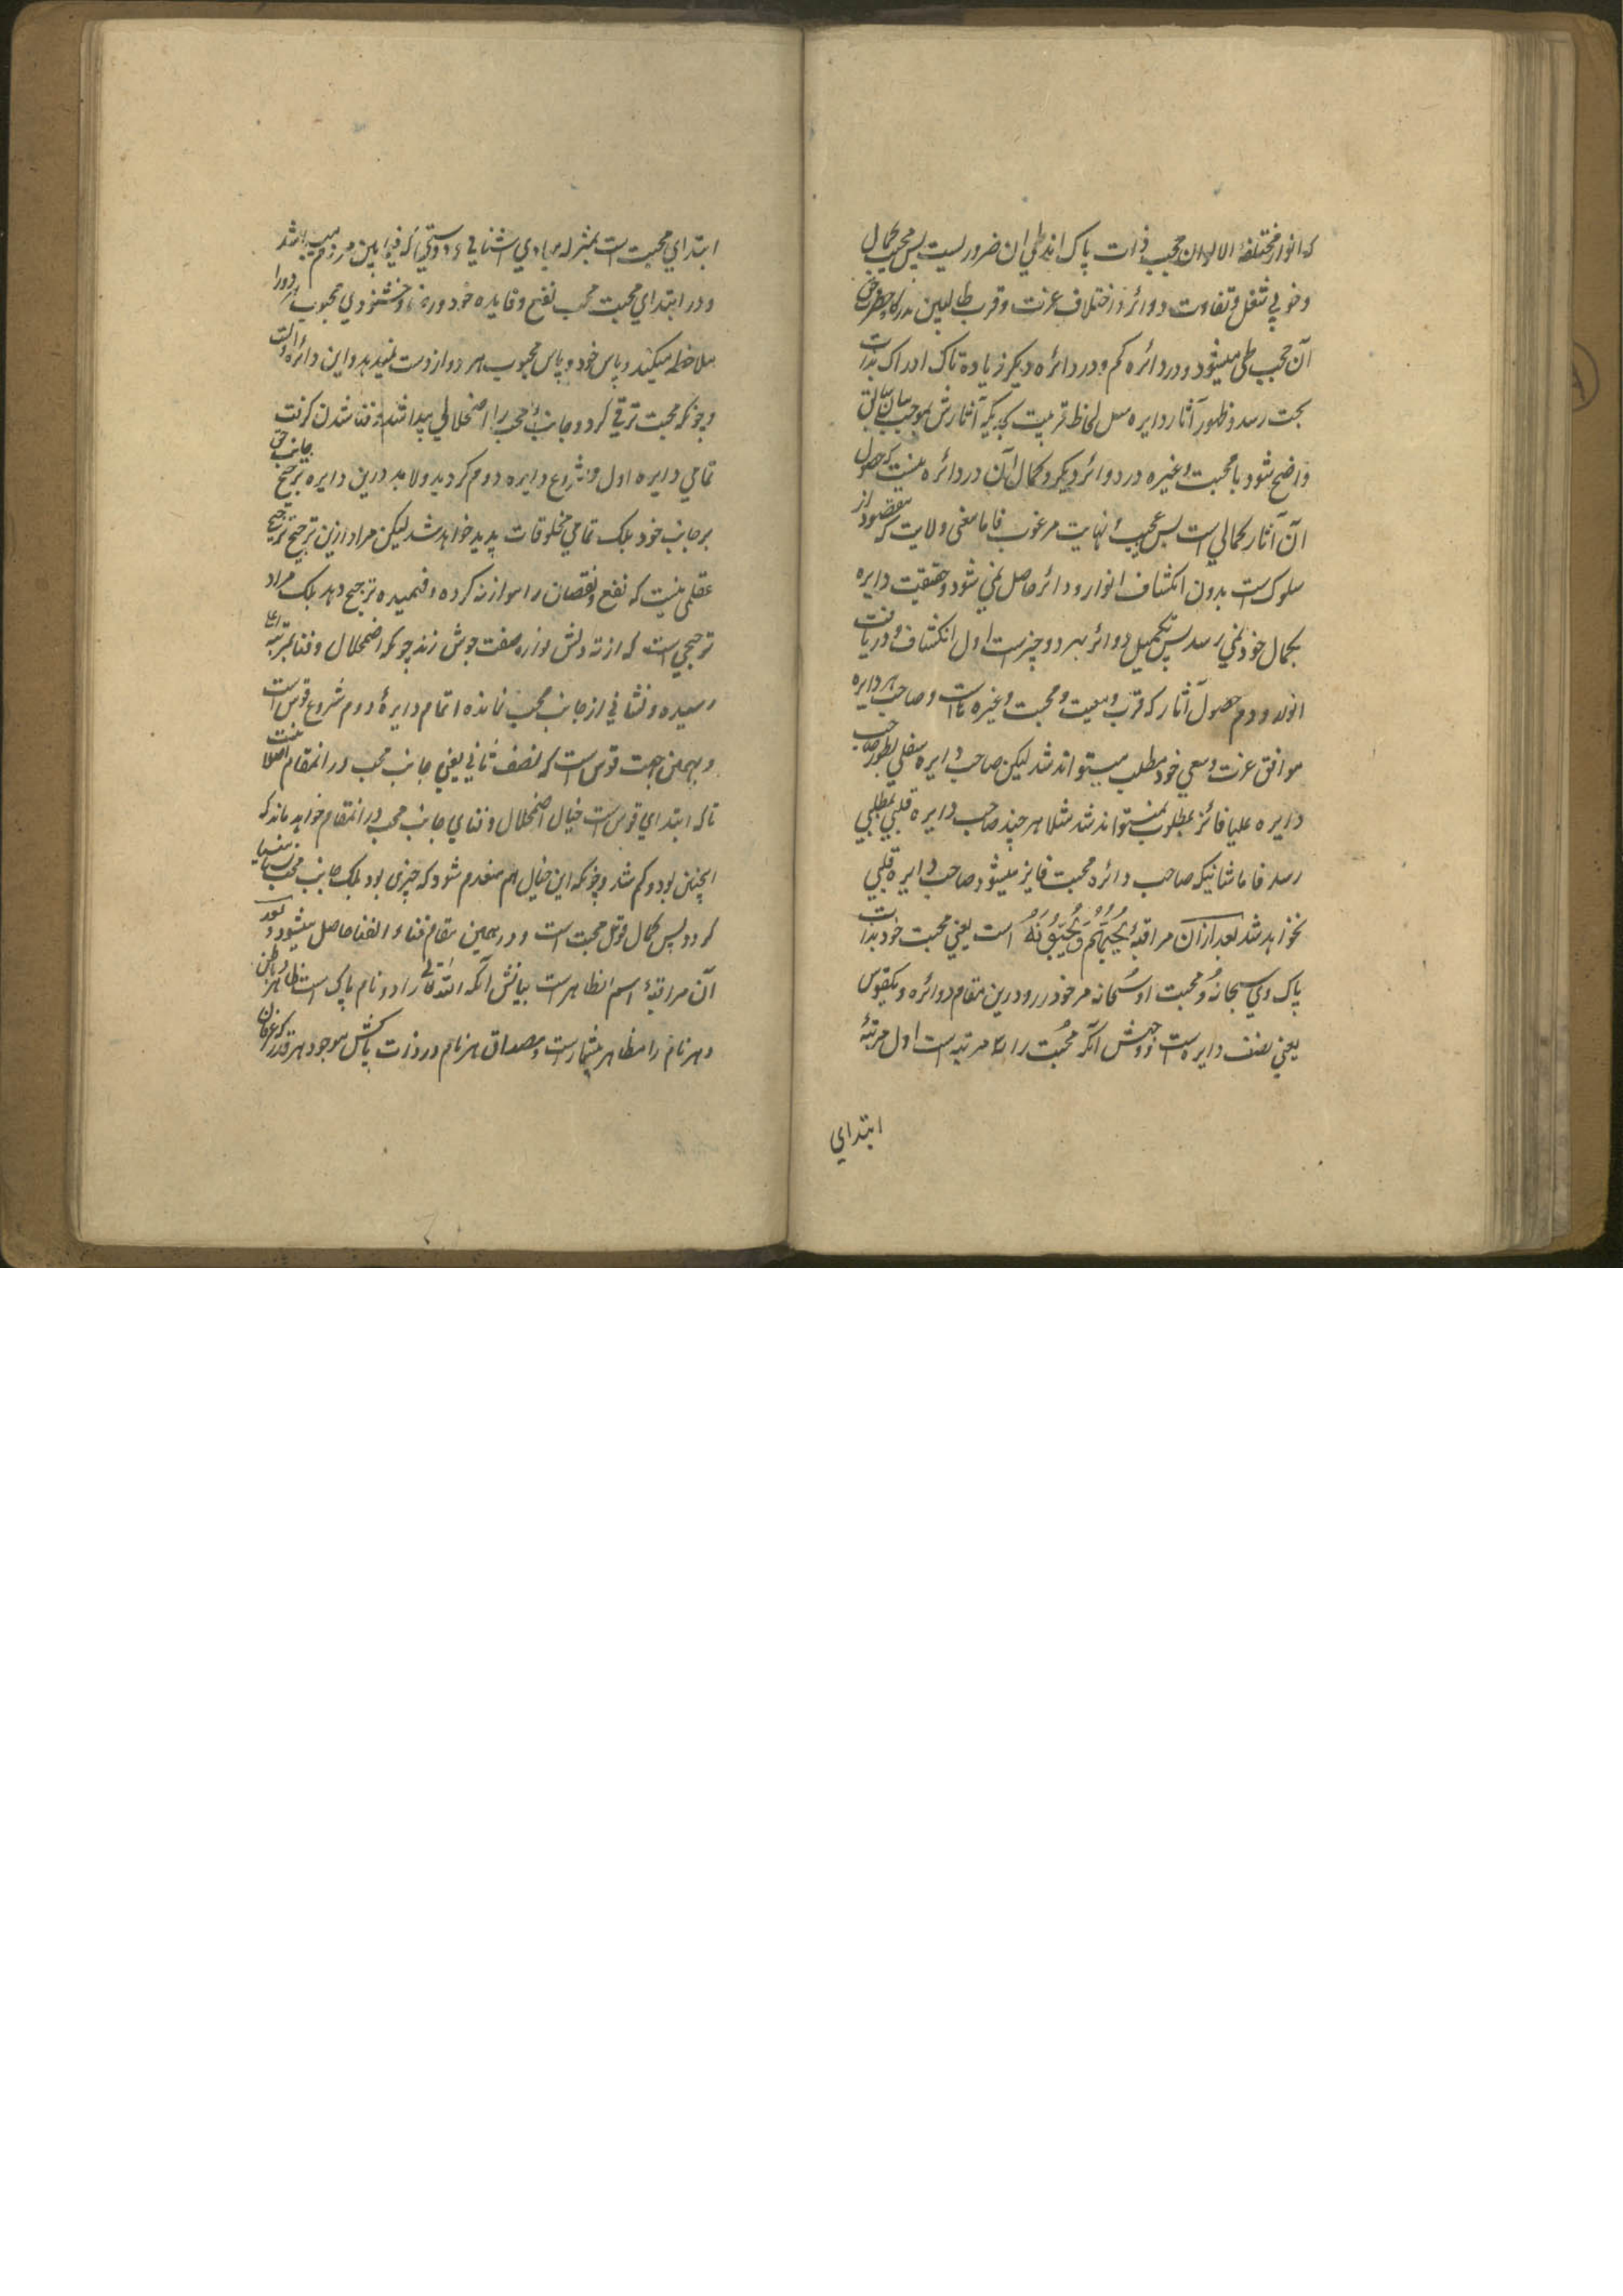 که انوار مختلفة الالوان حجب ذات پاک اند طی ان ضرور لیست پس بحسب کمال
و خوبی شغل و تفاوت دوائر و اختلاف عزت و قرب طالبین بدرگاه حضرت حق
آن حجب طی میشود و در دائره کم و در دائره دیگر زیاده تاکه ادراک بذات
بحت رسد و ظهور آثار دایره مثل لحاظ قربیت بحدیکه آثارش بموجب بیان سابق
واضح شود یا محبت وغیره در دوائر دیگر و کمال آن در دائره نیست که حصول
آن آثار کمالی است بس عجیب نهایت مرغوب فاما معنی ولایت که مقصود از
سلوک است بدون انکشاف انوار و دائره حاصل نمی شود و حقیقت دایره
بکمال خود نمی رسد پس تکمیل دوائر بهر دو چیز است اول انکشاف و دریافت
انوار و دوم حصول آثار که قرب و معیت و محبت وغیره است و صاحب هر دایره
موافق عزت و سعی خود مطلب میتواند شد لیکن صاحب دایره سفلی بطور صاحب
دایره علیا فائز بمطلوب نمیتواند شد مثلا هر چند صاحب دایره قلبی بمطلبی
رسد فاما شانیکه صاحب دائره محبت فایز میشود صاحب دایره قلبی
نخواهد شد بعد ازان مراقبهٔ یُحِبُّهُم وَیُحِبُّونَهُ است یعنی محبت خود بذات
پاک وی سبحانه و محبت او سبحانه مر خود را و درین مقام دوائره و یکقوس
یعنی نصف دایره است و وجهش آنکه محبت را سه مرتبه است اول مرتبهٔ
ابتدای
ابتدای محبت است بمنزله مبادی اشنائی و دوستی که فیما بین مردم میباشد
و در ابتدای محبت محب نفع و فایده خود و رضا و خشنودی محبوب هر دو را
ملاحظه میکند و پاس خود و پاس محبوب هر دو از دست نمیدهد و این دائره اولست
و چونکه محبت ترقی کرد و جانب محب را اضمحلالی پیدا شد و فنا شدن کرفت
تمامی دایره اول و شروع دایره دوم کردید و لابد درین دایره ترجیح جانب حق
بر جانب خود بلکه تمامی مخلوقات پدید خواهد شد لیکن مراد ازین ترجیح ترجیح
عقلی نیست که نفع و نقصان را موازنه کرده و فهمیده ترجیح دهد بلکه مراد
ترجیحی است که از ته دلش جوش زند چونکه اضمحلال و فنا بمرتبه
رسیده و نشانی از جانب محب نمانده اتمام دایرهٔ دوم شروع قوس است
و بهمین جهت قوس است که نصف ثانی یعنی جانب محب در انمقام اصلا نیست
تاکه ابتدای قوس است خیال اضمحلال و فنای جانب محب در انمقام خواهد ماند که
اینچنین بود و کم شد و چونکه این خیال هم منعدم شود که چیزی بود بلکه جانب محب نسیا منسیا
کردد پس کمال قوس محبت است و در همین مقام فناء الفنا حاصل میشود و بعد
آن مراقبهٔ اسم الظاهر است بیانش آنکه الله تعالی را دو نام پاک است ظاهر و باطن
و هر نام را مظاهر بیشمار است و مصداق هر نام در ذات پاکش موجود هر قدر که عرفان